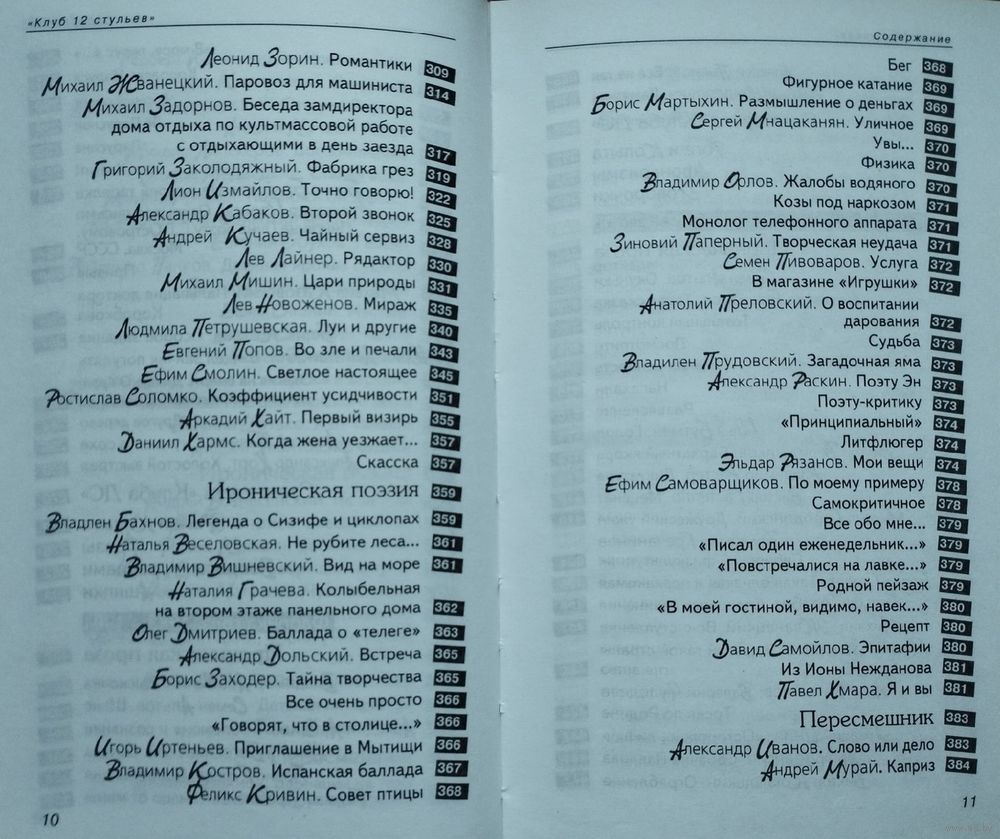 «Клуб 12 стульев»
Леонид Зорин. Романтики 309
Михаил Жванецкий. Паровоз для машиниста 314
Михаил Задорнов. Беседа замдиректора
дома отдыха по культмассовой работе
с отдыхающими в день заезда 317
Григорий Заколодяжный. Фабрика грез 319
Лион Измайлов. Точно говорю! 322
Александр Кабаков. Второй звонок 325
Андрей Кучаев. Чайный сервиз 328
Лев Лайнер. Рядактор 330
Михаил Мишин. Цари природы 331
Лев Новоженов. Мираж 335
Людмила Петрушевская. Луи и другие 340
Евгений Попов. Во зле и печали 343
Ефим Смолин. Светлое настоящее 345
Ростислав Соломко. Коэффициент усидчивости 351
Аркадий Хайт. Первый визирь 355
Даниил Хармс. Когда жена уезжает... 357
Скасска 357
Ироническая поэзия 359
Владлен Бахнов. Легенда о Сизифе и циклопах 359
Наталья Веселовская. Не рубите леса... 361
Владимир Вишневский. Вид на море 361
Наталия Грачева. Колыбельная
на втором этаже панельного дома 362
Олег Дмитриев. Баллада о «телеге» 363
Александр Дольский. Встреча 365
Борис Заходер. Тайна творчества 365
Все очень просто 366
«Говорят, что в столице...» 366
Игорь Иртеньев. Приглашение в Мытищи 366
Владимир Костров. Испанская баллада 367
Феликс Кривин. Совет птицы 368
10
Содержание
Бег 368
Фигурное катание 369
Борис Мартыхин. Размышление о деньгах 369
Сергей Мнацаканян. Уличное 369
Увы... 370
Физика 370
Владимир Орлов. Жалобы водяного 370
Козы под наркозом 371
Монолог телефонного аппарата 371
Зиновий Паперный. Творческая неудача 371
Семен Пивоваров. Услуга 372
В магазине «Игрушки» 372
Анатолий Преловский. О воспитании
дарования 372
Судьба 373
Владилен Прудовский. Загадочная яма 373
Александр Раскин. Поэту Эн 373
Поэту-критику 373
«Принципиальный» 374
Литфлюгер 374
Эльдар Рязанов. Мои вещи 374
Ефим Самоварщиков. По моему примеру 378
Самокритичное 378
Все обо мне... 379
«Писал один еженедельник...» 379
«Повстречалися на лавке...» 379
Родной пейзаж 379
«В моей гостиной, видимо, навек...» 380
Рецепт 380
Давид Самойлов. Эпитафии 380
Из Ионы Нежданова 381
Павел Хмара. Я и вы 381
Пересмешник 383
Александр Иванов. Слово или дело 383
Андрей Мурай. Каприз 384
11